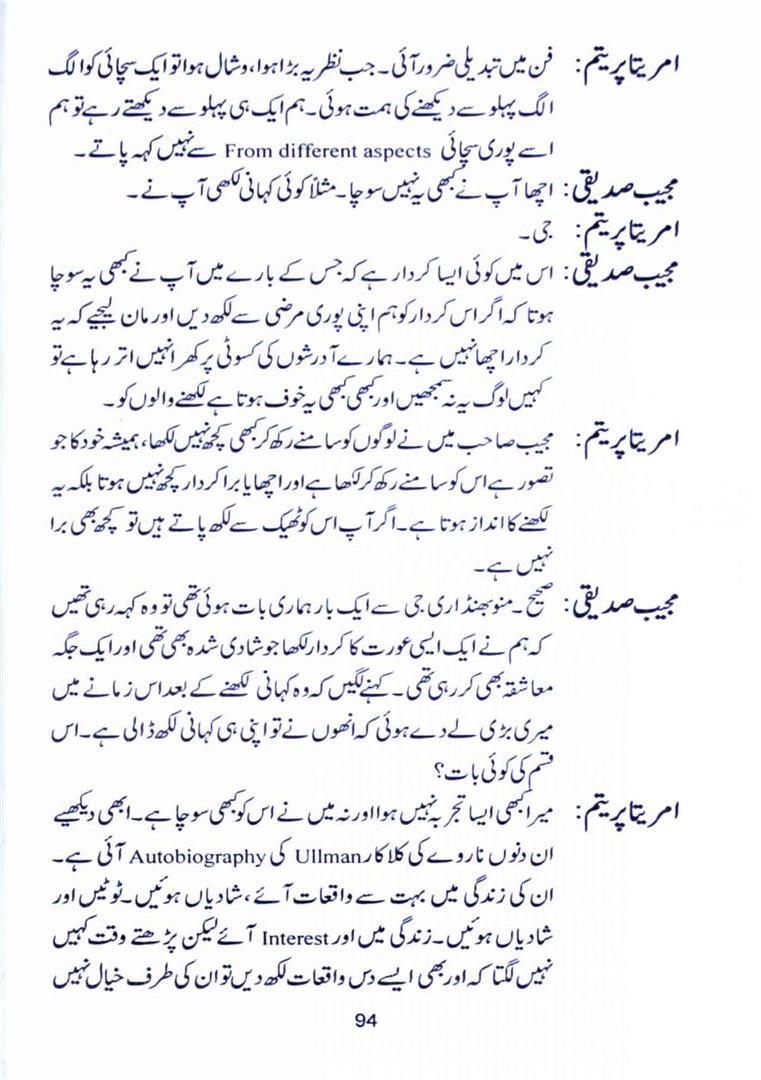 امریتا پریتم: فن میں تبدیلی ضرور آئی۔ جب نظریہ بڑا ہوا، وشال ہوا تو ایک سچائی کو الگ
الگ پہلو سے دیکھنے کی ہمت ہوئی۔ ہم ایک ہی پہلو سے دیکھتے رہے تو ہم
اسے پوری سچائی From different aspects سے نہیں کہہ پاتے۔
مجیب صدیقی: اچھا آپ نے کبھی یہ نہیں سوچا۔ مثلاً کوئی کہانی لکھی آپ نے۔
امریتا پریتم: جی۔
مجیب صدیقی: اس میں کوئی ایسا کردار ہے کہ جس کے بارے میں آپ نے کبھی یہ سوچا
ہوتا کہ اگر اس کردار کو ہم اپنی پوری مرضی سے لکھ دیں اور مان لیجیے کہ یہ
کردار اچھا نہیں ہے۔ ہمارے آدرشوں کی کسوٹی پر کھرا نہیں اتر رہا ہے تو
کہیں لوگ یہ نہ سمجھیں اور کبھی کبھی یہ خوف ہوتا ہے لکھنے والوں کو۔
امریتا پریتم: مجیب صاحب میں نے لوگوں کو سامنے رکھ کر کبھی کچھ نہیں لکھا، ہمیشہ خود کا جو
تصور ہے اس کو سامنے رکھ کر لکھا ہے اور اچھا یا برا کردار کچھ نہیں ہوتا بلکہ یہ
لکھنے کا انداز ہوتا ہے۔ اگر آپ اس کو ٹھیک سے لکھ پاتے ہیں تو کچھ بھی برا
نہیں ہے۔
مجیب صدیقی: صحیح۔ منو بھنڈاری جی سے ایک بار ہماری بات ہوئی تھی تو وہ کہہ رہی تھیں
کہ ہم نے ایک ایسی عورت کا کردار لکھا جو شادی شدہ بھی تھی اور ایک جگہ
معاشقہ بھی کر رہی تھی۔ کہنے لگیں کہ وہ کہانی لکھنے کے بعد اس زمانے میں
میری بڑی لے دے ہوئی کہ انھوں نے تو اپنی ہی کہانی لکھ ڈالی ہے۔ اس
قسم کی کوئی بات؟
امریتا پریتم: میرا کبھی ایسا تجربہ نہیں ہوا اور نہ میں نے اس کو کبھی سوچا ہے۔ ابھی دیکھیے
ان دنوں ناروے کی کلاکار Ullman کی Autobiography آئی ہے۔
ان کی زندگی میں بہت سے واقعات آئے، شادیاں ہوئیں۔ ٹوٹیں اور
شادیاں ہوئیں۔ زندگی میں اور Interest آئے لیکن پڑھتے وقت کہیں
نہیں لگتا کہ اور بھی ایسے دس واقعات لکھ دیں تو ان کی طرف خیال نہیں
94